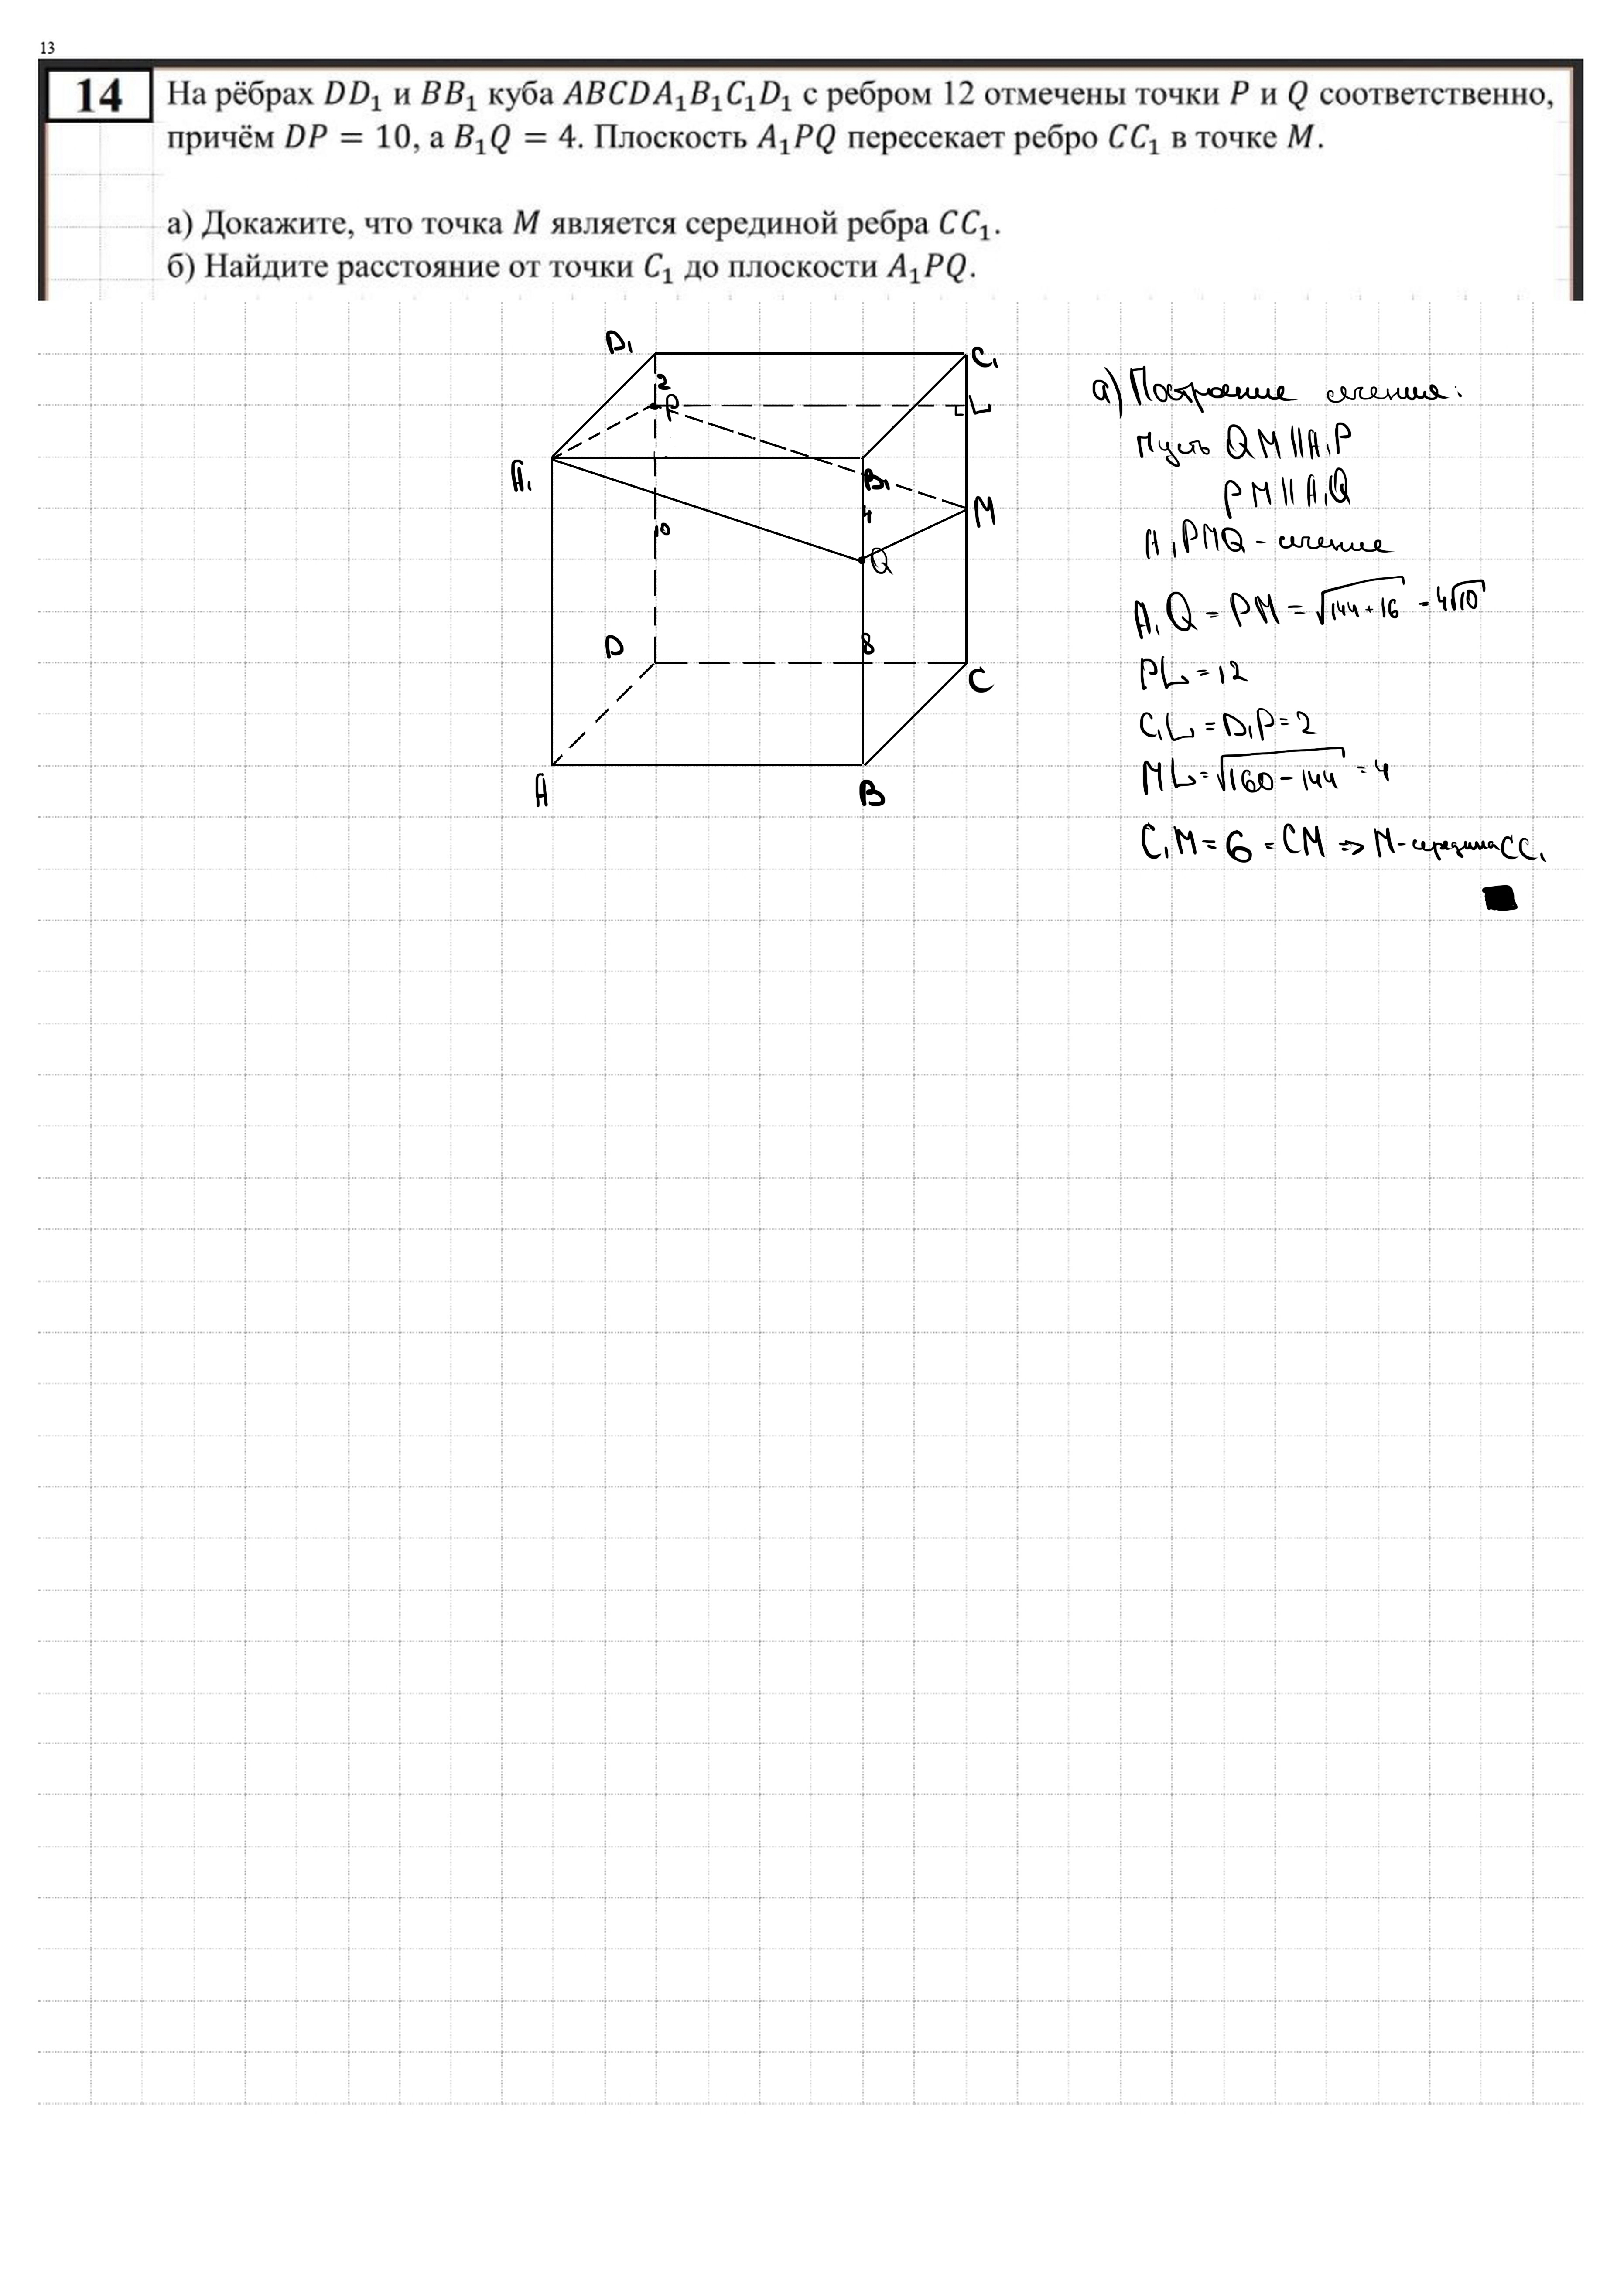 13
14
На рёбрах DD₁ и BB₁ куба ABCDA₁B₁C₁D₁ с ребром 12 отмечены точки P и Q соответственно,
причём DP = 10, а B₁Q = 4. Плоскость A₁PQ пересекает ребро CC₁ в точке M.
а) Докажите, что точка M является серединой ребра CC₁.
б) Найдите расстояние от точки C₁ до плоскости A₁PQ.
D₁
C₁
2
P
L
A₁
B₁
4
M
10
Q
D
8
C
A
B
а) Построение сечения:
Пусть QM || A₁P
PM || A₁Q
A₁PMQ - сечение
A₁Q = PM = √144+16 = 4√10
PL = 12
C₁L = D₁P = 2
ML = √160-144 = 4
C₁M = 6 = CM => M - середина CC₁